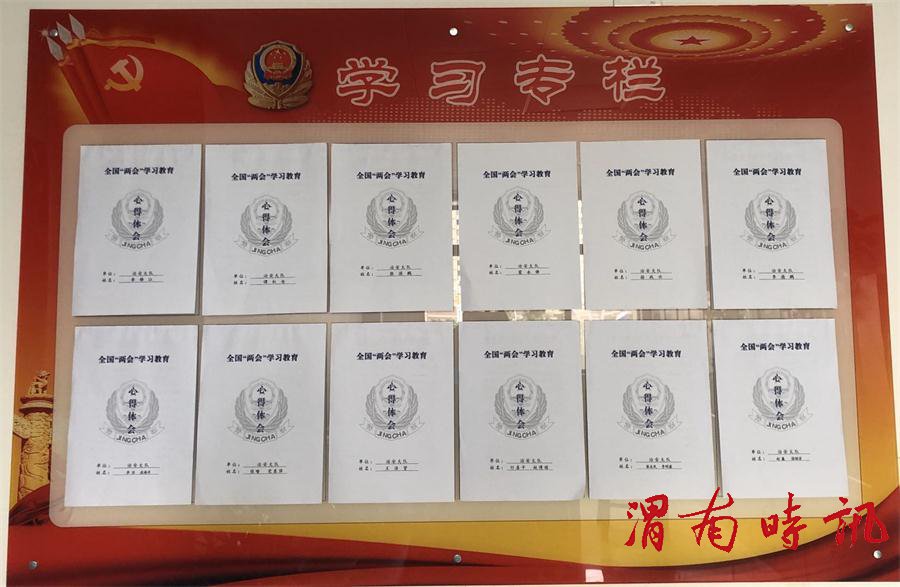 学习专栏
全国“两会”学习教育
心得体会
JINGCHA
单位：治安大队
姓名：
全国“两会”学习教育
心得体会
JINGCHA
单位：治安大队
姓名：
全国“两会”学习教育
心得体会
JINGCHA
单位：治安大队
姓名：
全国“两会”学习教育
心得体会
JINGCHA
单位：治安大队
姓名：
全国“两会”学习教育
心得体会
JINGCHA
单位：治安大队
姓名：
全国“两会”学习教育
心得体会
JINGCHA
单位：治安大队
姓名：
全国“两会”学习教育
心得体会
JINGCHA
单位：治安大队
姓名：
全国“两会”学习教育
心得体会
JINGCHA
单位：治安大队
姓名：
全国“两会”学习教育
心得体会
JINGCHA
单位：治安大队
姓名：
全国“两会”学习教育
心得体会
JINGCHA
单位：治安大队
姓名：
全国“两会”学习教育
心得体会
JINGCHA
单位：治安大队
姓名：
全国“两会”学习教育
心得体会
JINGCHA
单位：治安大队
姓名：
渭南時訊